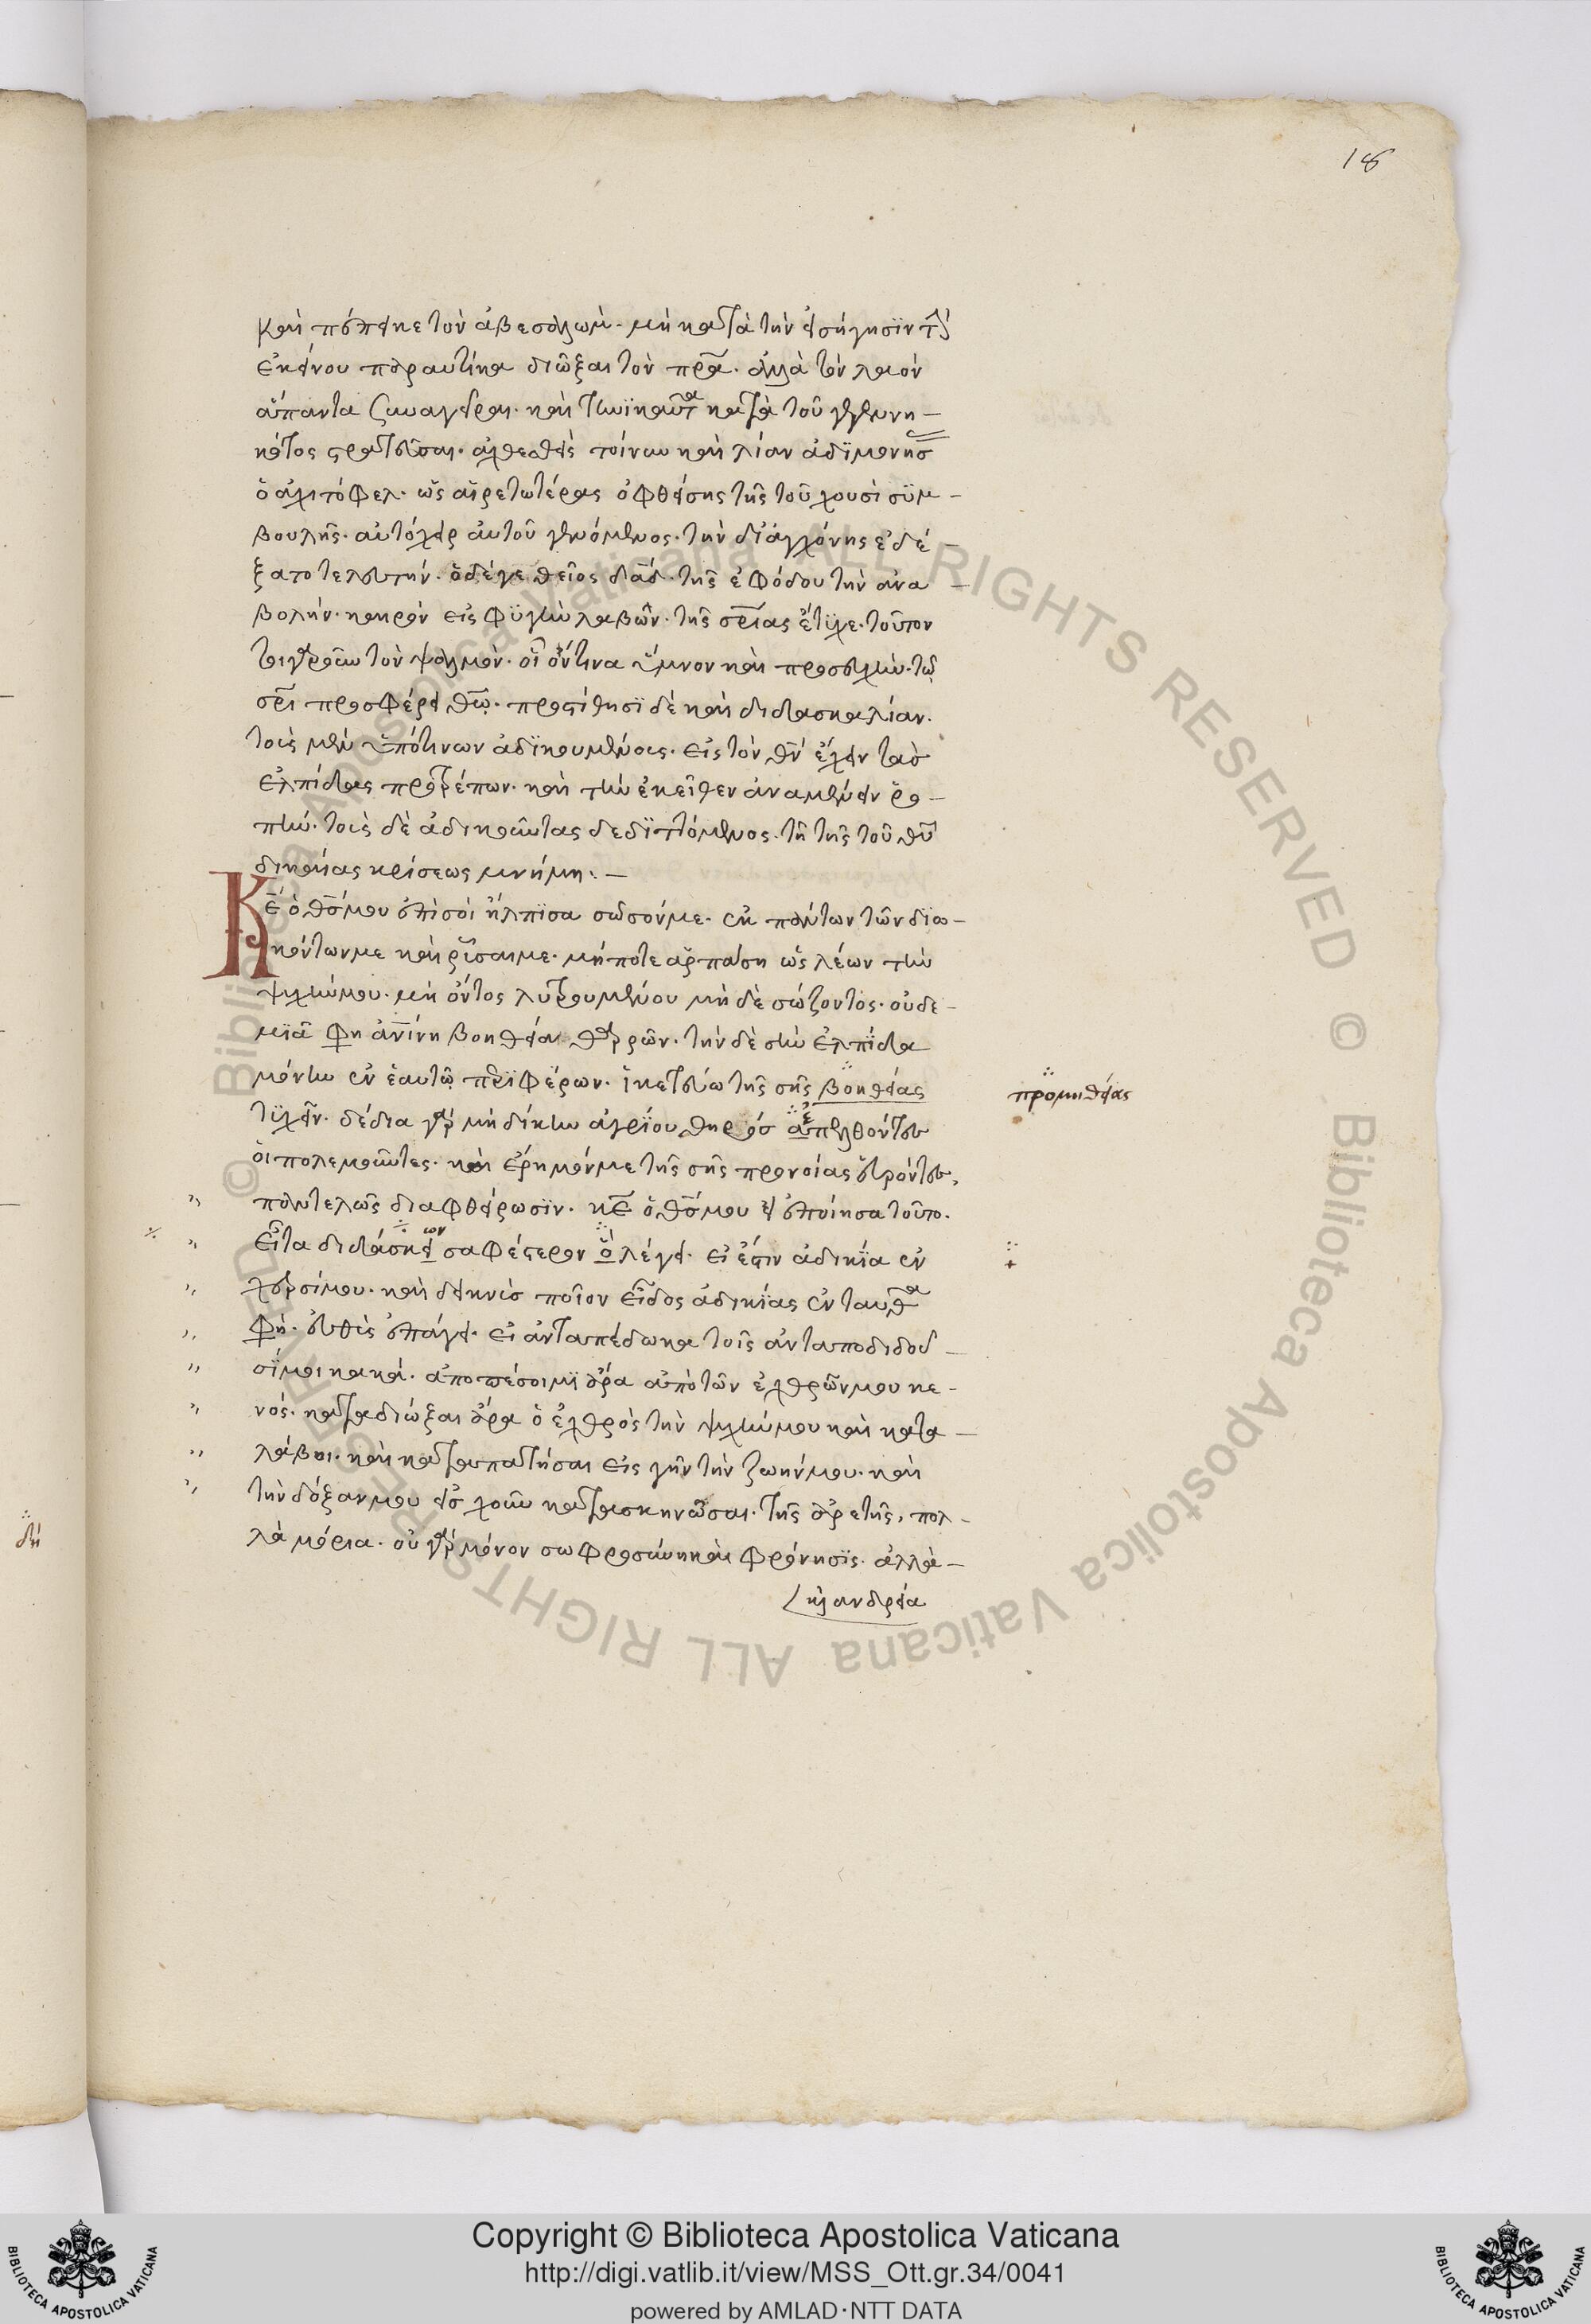 18
καὶ πέπεικε τὸν ἀβεσαλὼμ. μὴ κατὰ τὴν εἰσήγησϊν τὴν
ἐκείνου παραυτίκα διῶξαι τὸν πρα. ἀλλὰ τὸν λαὸν
ἅπαντα συναγεῖραι. καὶ τηνϊκαῦτα κατὰ τοῦ γεγεννη-
κότος στρατεῦσαι. ἀχθεσθεὶς τοίνυν καὶ λίαν ἀδϊμονήσ
ὁ ἀχιτόφελ. ὡς αἱρετωτέρας ὀφθείσης τῆς τοῦ χουσὶ σϋμ-
βουλῆς. αὐτόχειρ αὐτοῦ γενόμενος. τὴν δι' ἀγχόνης ἐδέ-
ξατο τελευτήν. ὁ δέ γε θεῖος δαδ. τῆς ἐφόδου τὴν ἀνα-
βολήν. καιρὸν εἰς φϋγὴν λαβὼν. τῆς σρίας ἔτϋχε. τοῦτον
συγγράφων τὸν ψαλμὸν. οἷόν τινα ὕμνον καὶ προσευχὴν. τῷ
σρι προσφέρει θω. προστίθησϊ δὲ καὶ διδασκαλίαν.
τοὺς μὲν ὑπό τινων ἀδϊκουμένους. εἰς τὸν θν ἔχειν τὰσ
ἐλπίδας προτρέπων. καὶ τὴν ἐκεῖθεν ἀναμένειν ῥο-
πήν. τοὺς δὲ ἀδικοῦντας δεδϊττόμενος. τῇ τῆς τοῦ θυ
δικαίας κρίσεως μνήμη. -
Κε ὁ θσ μου ἐπὶ σοὶ ἤλπϊσα σῶσόν με. ἐκ πάντων τῶν δϊω-
κόντων με καὶ ῥῦσαι με. μήποτε ἁρπάση ὡς λέων τὴν
ψυχήν μου. μὴ ὄντος λϋτρουμένου μὴ δὲ σώζοντος. οὐδε-
μϊᾶ φη ἀνίνη βοηθεία θαρρῶν. τὴν δὲ σὴν ἐλπίδα
μόνην ἐν ἑαυτῷ περϊφέρων. ἱκετεύω τῆς σῆς βοηθείας
τϋχεῖν. δέδια γὰρ μὴ δίκην ἀγρίου θηρὸσ ἀπελθόντες
οἱ πολεμοῦντες. καὶ ἔρημόν με τῆς σῆς προνοίας εὑρόντες,
παντελῶς διαφθείρωσϊν. κε ὁ θσ μου εἰ ἐποίησα τοῦτο.
εἶτα διδάσκει ων σαφέστερον ὃ λέγει. εἰ ἔστιν ἀδικία ἐν
χερσί μου. καὶ δεικνὺσ ποῖον εἶδος ἀδικίας ἐνταῦθα
φη. εὐθὺς ἐπάγει. εἰ ἀνταπέδωκα τοῖς ἀνταποδιδοῦ-
σϊ μοι κακά. ἀποπέσοιμϊ ἄρα ἀπὸ τῶν ἐχθρῶν μου κε-
νός. καταδιώξαι ἄρα ὁ ἐχθρὸς τὴν ψυχήν μου καὶ κατα-
λάβοι. καὶ καταπατήσαι εἰς γῆν τὴν ζωήν μου. καὶ
τὴν δόξαν μου εἰσ χοῦν κατασκηνῶσαι. τῆς ἀρετῆς, πολ-
λὰ μόρια. οὐ γὰρ μόνον σωφροσύνη καὶ φρόνησϊς. ἀλλὰ-
κ ανδρεία
προμηθείας
Copyright © Biblioteca Apostolica Vaticana
http://digi.vatlib.it/view/MSS_Ott.gr.34/0041
powered by AMLAD·NTT DATA